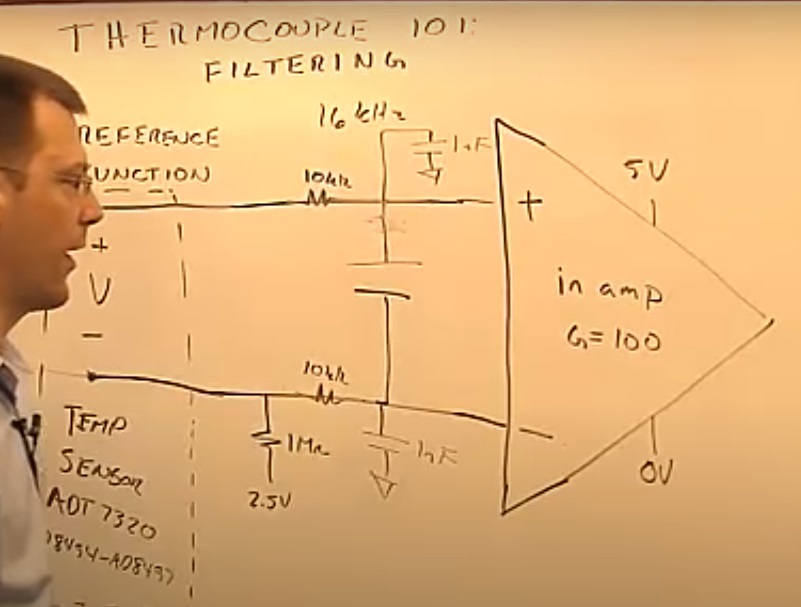 THERMOCOUPLE 101:
FILTERING
16 kHz
1nF
REFERENCE
JUNCTION
10kΩ
5V
+
+
V
in amp
G=100
-
10kΩ
-
TEMP
SENSOR
ADT7320
1MΩ
1nF
2.5V
0V
D8494-AD8497